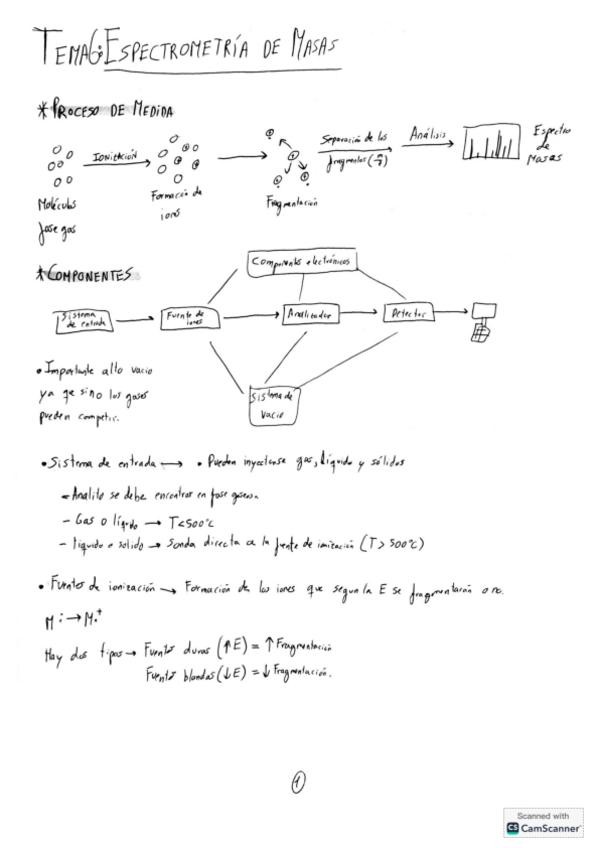 TEMA 6: ESPECTROMETRÍA DE MASAS
* PROCESO DE MEDIDA
IONIZACIÓN
Separación de los
fragmentos (m/z)
Análisis
Espectro
de
Masas
Moléculas
fase gas
Formación de
iones
Fragmentación
* COMPONENTES
Componentes electrónicos
Sistema
de entrada
Fuente de
iones
Analizador
Detector
Sistema de
vacio
• Importante alto vacio
ya qe sino los gases
pueden competir.
• Sistema de entrada → • Pueden inyectarse gas, líquido y sólidos
- Analito se debe encontrar en fase gaseosa
- Gas o líquido → T<500°C
- líquido o sólido → Sonda directa a la fuente de ionización (T> 500°C)
• Fuentes de ionización → Formación de los iones que segun la E se fragmentarán o no.
M: → M·+
Hay dos tipos → Fuentes duras (↑E) = ↑ Fragmentación
Fuentes blandas (↓E) = ↓ Fragmentación.
1
Scanned with
CS CamScanner